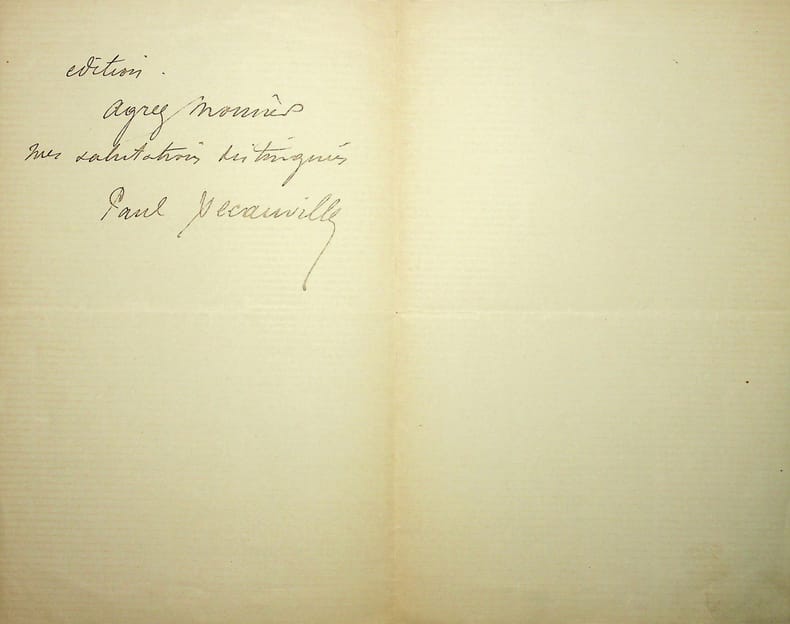 edition.
Agreez Monsieur
mes salutations distinguées
Paul Decauville